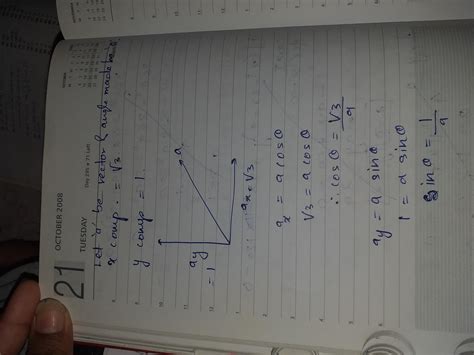 21
OCTOBER 2008
TUESDAY
Let a be vector & angle made be
x comp. = √3
y comp = 1.
a
ay
= 1
ax = √3
ax = a cosθ
√3 = a cosθ
∴ cosθ = √3/a
ay = a sinθ
1 = a sinθ
sinθ = 1/a